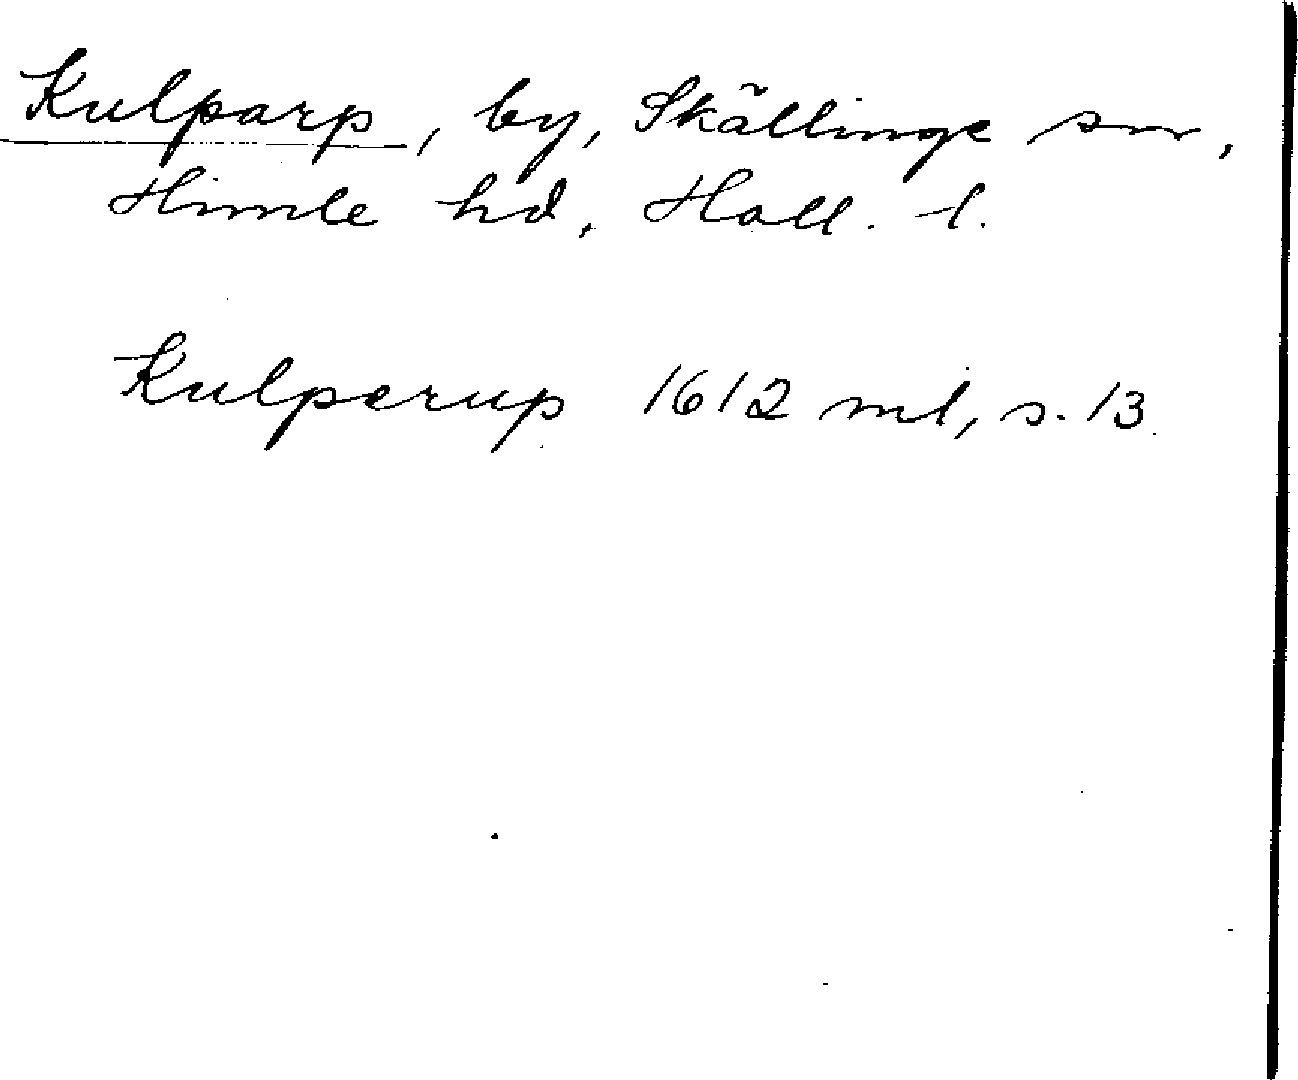 Kulparp, by, Skällinge sn,
Himle hd, Hall. l.
Kulperup 1612 ml, s. 13